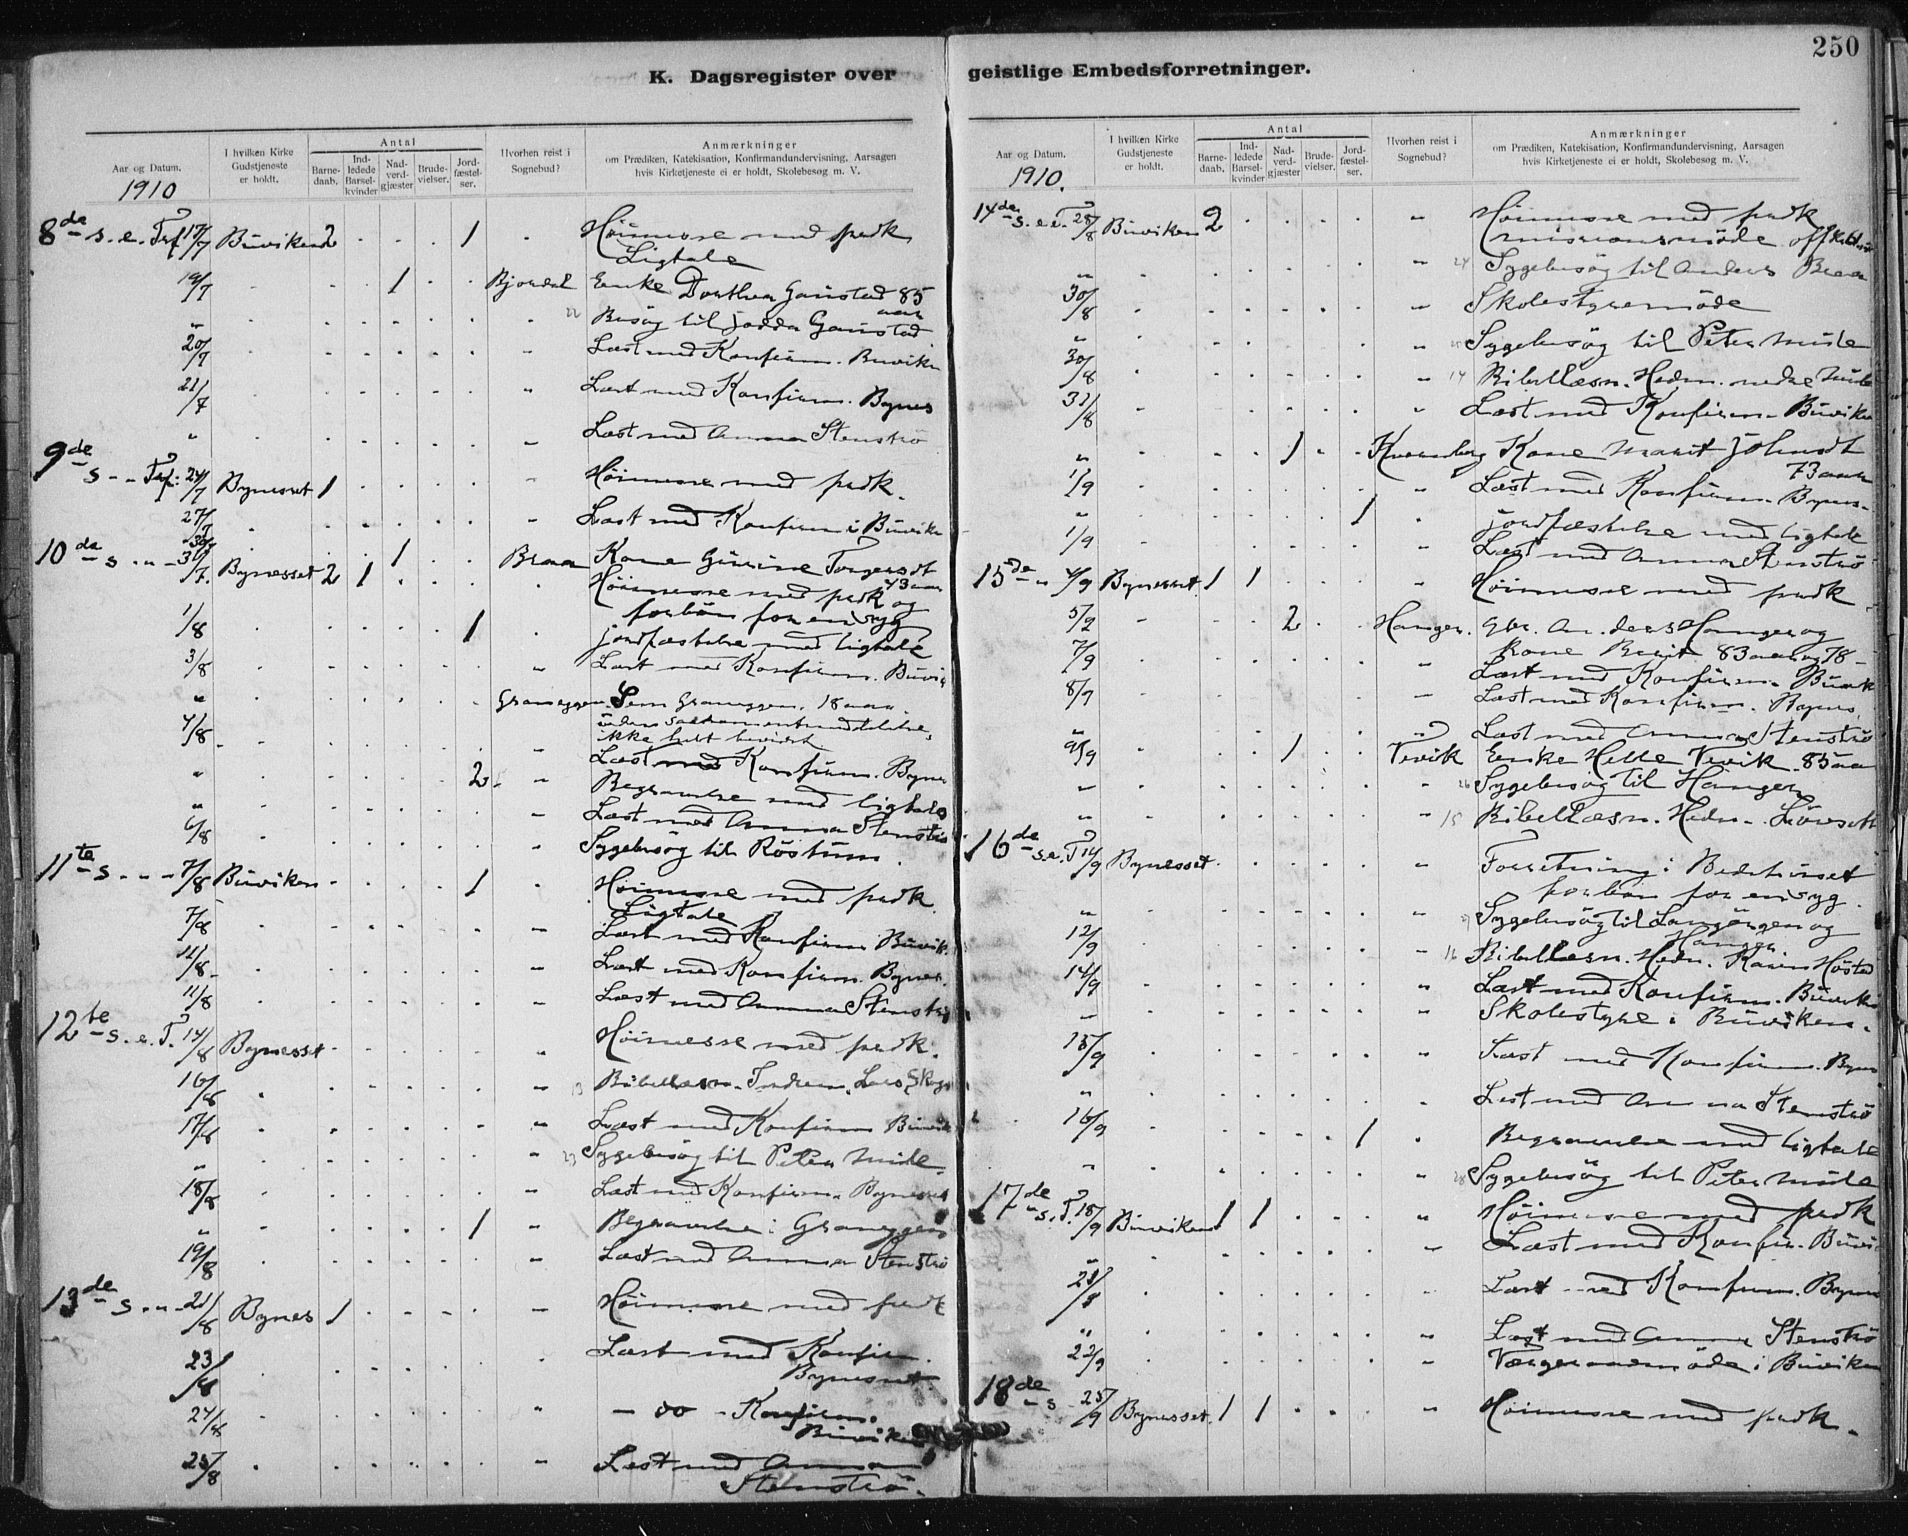 250
K. Dagsregister over geistlige Embedsforretninger.
Aar og Datum.
1910
I hvilken Kirke Gudstjeneste er holdt.
Antal
Barne-daab.
Ind-ledede Barsel-kvinder
Nad-verd-gjæster
Brude-vielser.
Jord-fæstel-ser.
Hvorhen reist i Sognebud?
Anmærkninger
om Prædiken, Katekisation, Konfirmandundervisning, Aarsagen
hvis Kirketjeneste ei er holdt, Skolebesøg m. V.
8de s. e. Tref 17/7 Buviken 2 1 Höimesse med prædk
Ligtale
19/7 1 Enke Dorthea Gaustad 85 aar
" 22 Besøg til Gaustad
20/7 " Læst med Konfirm. Buviken
21/7 " Læst med Konfirm. Bynes
" " Læst med Anna Stenströ
9de s. " Tref: 24/7 Bynesset 1 Höimesse med prædk.
27/7 " Læst med Konfirm i Buviken
30/7 1 Braa Kone Gurine Torgersdt
43 aar
10de s. " " 31/7. Bynesset 2 1 Höimesse med prædk og
forbön for en syg
1/8 1 jordfæstelse med ligtale
3/8 " Læst med Konfirm. Buvik
" Graneggen. Graneggen. 18 aar.
uden sakramentmeddelelse,
ikke helt bevidst
4/8 " Læst med Konfirm. Bynes
" 2 " Begravelse med ligtale
" " Læst med Anna Stenströ
6/8 " Sygebesøg til Röstum.
11te s. " " 7/8 Buviken 1 Höimesse med prædk
Ligtale
" Læst med Konfirm Buvik.
11/8 " Læst med Konfirm. Bynes.
11/8 " Læst med Anna Stenströ
12te s. e. T. 14/8 Bynesset " Höimesse med prædk.
16/8 " 13 Bibellæsn. Lars
17/8 " Læst med Konfirm Buvik
" " 23 Sygebesøg til Peter Mule
18/8 " Læst med Konfirm. Bynesset
" 1 " Begravelse i Graneggen
19/8 " Læst med Anna Stenströ
13de s. " " 21/8 Bynes 1 " Höimesse med prædk
23/8 Læst med Konfirm.
Bynesset
24/8 " - do - Konfirm.
Buviken
25/8 " Læst med Anna
Stenströ.
Aar og Datum.
1910.
I hvilken Kirke Gudstjeneste er holdt.
Antal
Barne-daab.
Ind-ledede Barsel-kvinder
Nad-verd-gjæster
Brude-vielser.
Jord-fæstel-ser.
Hvorhen reist i Sognebud?
Anmærkninger
om Prædiken, Katekisation, Konfirmandundervisning, Aarsagen
hvis Kirketjeneste ei er holdt, Skolebesøg m. V.
14de s. e. T. 28/8 Buviken 2 " Höimesse med prædk
missionsmöde
" " 24 Sygebesøg til Anders Braa
30/8 " Skolestyremöde
" " 25 Sygebesøg til Peter Mule
30/8 " 14 Bibellæsn. Hedn. nedre Mule
31/8 " Læst med Konfirm. Buviken
" 1 Kone Marit Johnsdt
73 aar
1/9 " Læst med Konfirm. Bynes.
" 1 jordfæstelse med ligtale
1/9 Læst med Anna Stenströ
15de " " 4/9 Bynesset 1 1 " Höimesse med prædk
5/9 2 Hanger. Gbr. Anders Hanger og
kone Berit 83 aar og 78 -
7/9 " Læst med Konfirm. Buvik
8/9 " Læst med Konfirm. Bynes.
" Læst med Anna Stenströ
9/9 1 Vevik Enke Vevik. 85 aar
" " 26 Sygebesøg til Hanger
" " 15 Bibellæsn. Hedn.
16de s. e. T. 11/9 Bynesset. " Forretning i Bedehuset
forbön for en syg.
" " 27 Sygebesøg til og
Hanger
12/9 " 16 Bibellæsn. Hedn.
14/9 " Læst med Konfirm. Buviken
" " Skolestyre i Buviken.
15/9 " Læst med Konfirm. Bynes
" Læst med Anna Stenströ
16/9 1 Begravelse med ligtale
" " 28 Sygebesøg til Peter Mule
17de s. T. 18/9 Buviken 1 1 " Höimesse med prædk
" " Læst med Konfir. Buvik
21/8 Læst med Konfirm. Bynes
" " Læst med Anna Stenströ
22/9 " Værgeraadsmöde i Buviken
18de " s 25/9 Bynesset. 1 1 " Höimesse med prædk.